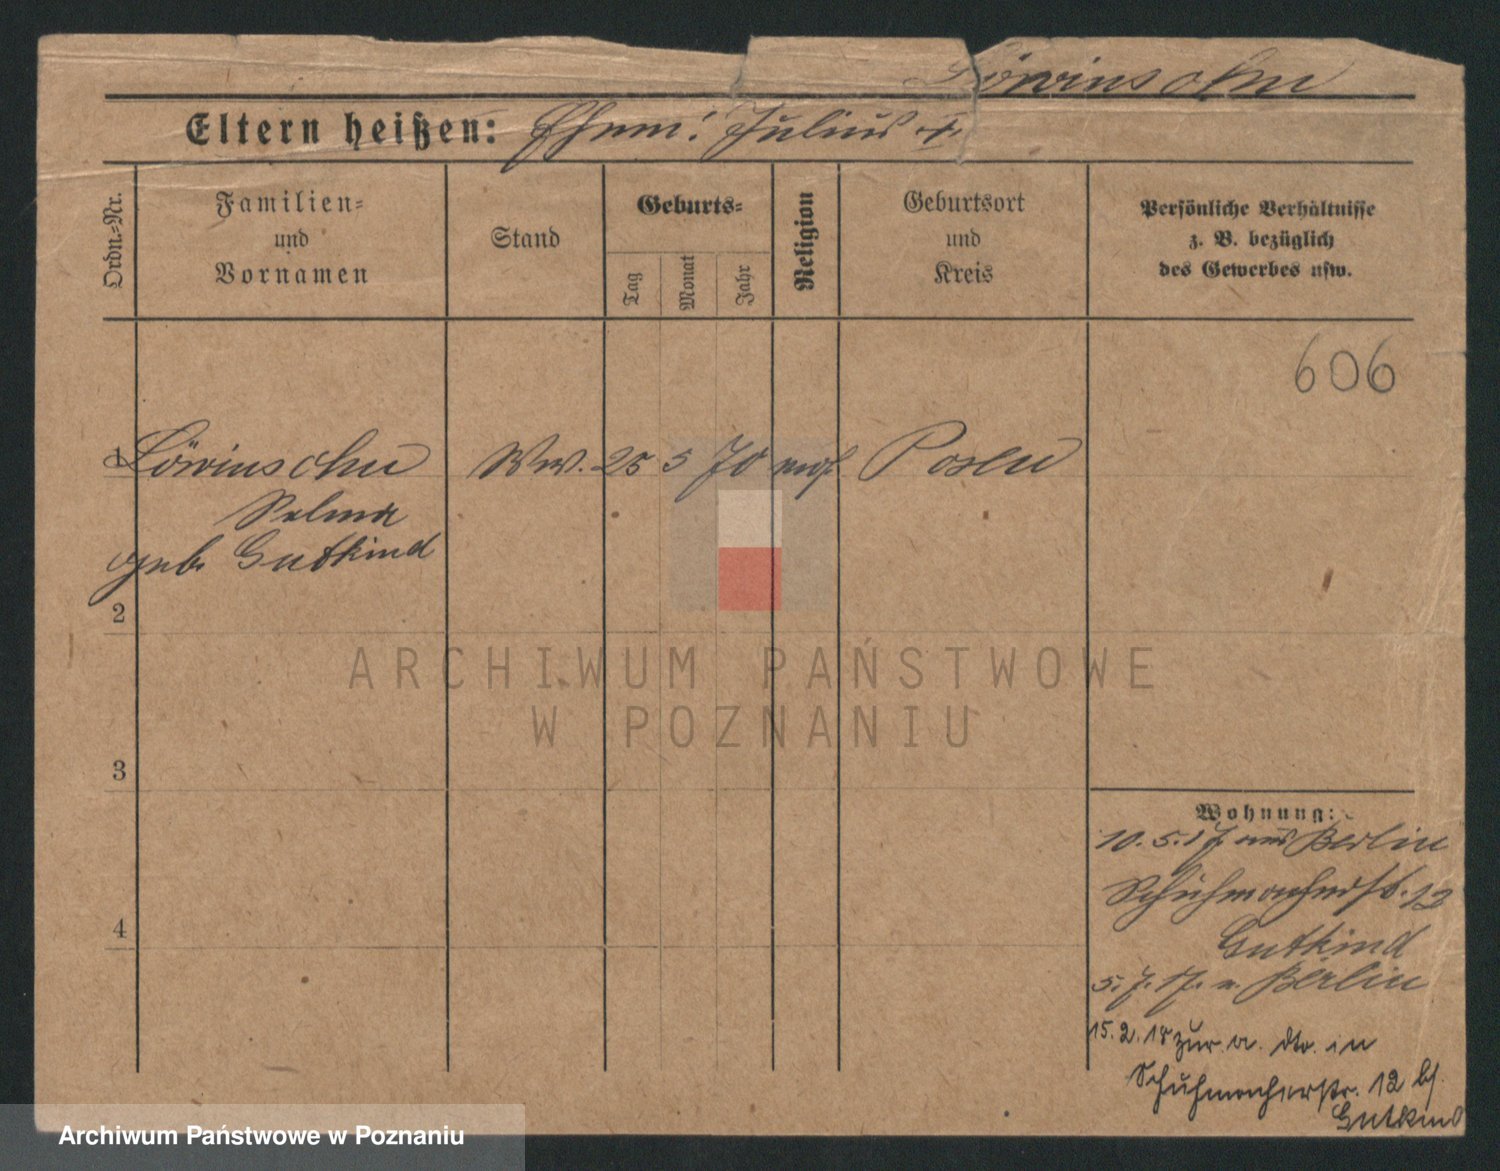 Löwinsohn
Eltern heißen: Ehem: Julius †
Ordn.-Nr.
Familien- und Vornamen
Stand
Geburts-
Tag
Monat
Jahr
Religion
Geburtsort und Kreis
Persönliche Verhältnisse
z. B. bezüglich
des Gewerbes usw.
606
1 Löwinsohn Ww. 25 5 70 mos. Posen
Selma
geb. Gutkind
2
3
4
Wohnung:
10.5.17 aus Berlin
Schuhmacherstr. 12
Gutkind
5.7.17. n. Berlin
15.2.18 zur. a. dto. in
Schuhmacherstr. 12 bei
Gutkind
ARCHIWUM PAŃSTWOWE
W POZNANIU
Archiwum Państwowe w Poznaniu